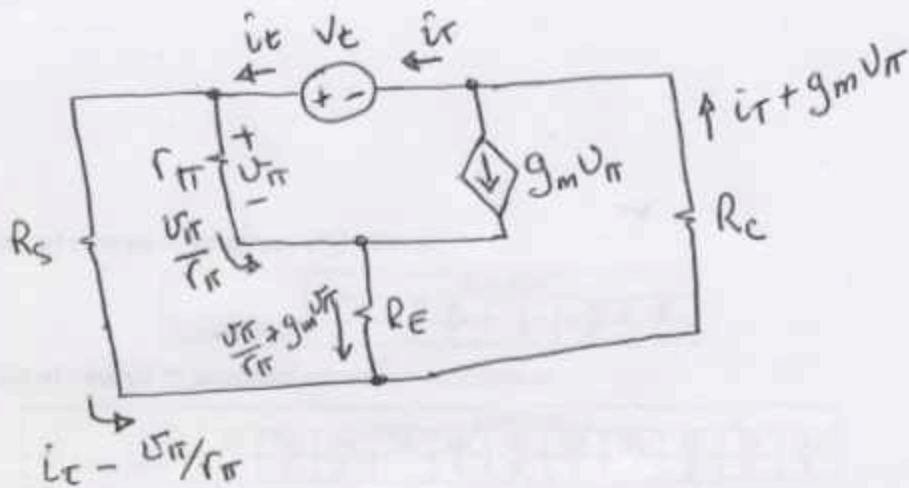 it Vt iτ
+ -
iτ + gmVπ
rπ + Vπ -
gmVπ
RS
RC
Vπ/rπ
Vπ/rπ + gmVπ
RE
it - Vπ/rπ